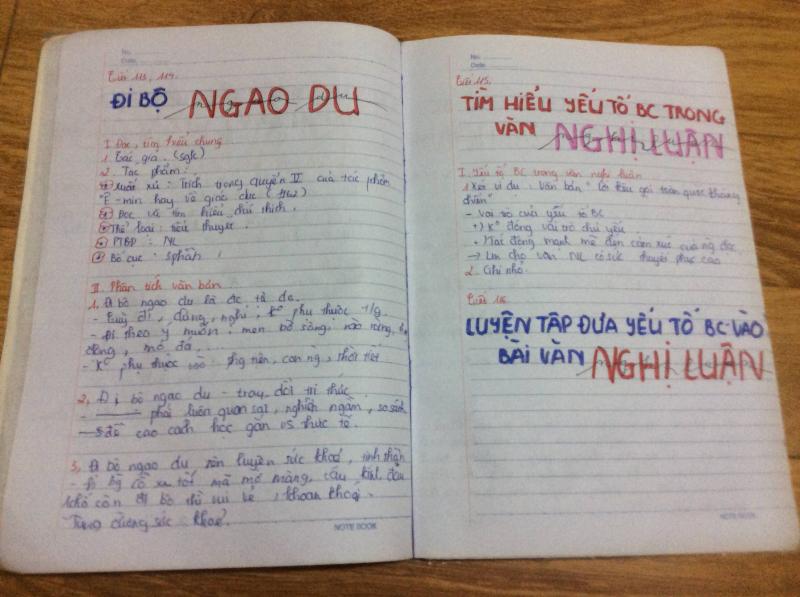 No.
Date
Tiết 113, 114.
ĐI BỘ NGAO DU
I. Đọc, tìm hiểu chung
1. Tác giả. (sgk)
2. Tác phẩm:
Xuất xứ: Trích trong quyển V của tác phẩm
"Ê-min hay về giáo dục (1762)
Đọc và tìm hiểu chú thích.
Thể loại: tiểu thuyết.
PTBĐ: NL
Bố cục: 3 phần
II. Phân tích văn bản
1. Đi bộ ngao du là đc tự do.
- tuỳ đi, dừng, nghỉ, ko phụ thuộc t/g.
- Đi theo ý muốn: men bờ sông, vào rừng,
động, mỏ đá.
- Ko phụ thuộc vào: thời tiết
2. Đi bộ ngao du - trau dồi tri thức
- phải luôn quan sát, nghiền ngẫm, so sánh
→ đề cao cách học gắn vs thực tế.
3. Đi bộ ngao du rèn luyện sức khoẻ, tinh thần
- Đi xe tốt mà mơ màng, cáu kỉnh, đau
khổ còn đi bộ thì vui vẻ, khoan khoái.
Tăng cường sức khoẻ.
NOTE BOOK
No.
Date
Tiết 115.
TÌM HIỂU YẾU TỐ BC TRONG
VĂN NGHỊ LUẬN
I. Yếu tố BC trong văn nghị luận
1. Xét ví dụ: Văn bản "Lời kêu gọi toàn quốc kháng
chiến"
- Vai trò của yếu tố BC
+) Ko đóng vai trò chủ yếu
+ Tác động mạnh mẽ đến cảm xúc của ng đọc
→ Làm cho văn NL có sức thuyết phục cao
2. Ghi nhớ.
Tiết 116
LUYỆN TẬP ĐƯA YẾU TỐ BC VÀO
BÀI VĂN NGHỊ LUẬN
NOTE BOOK